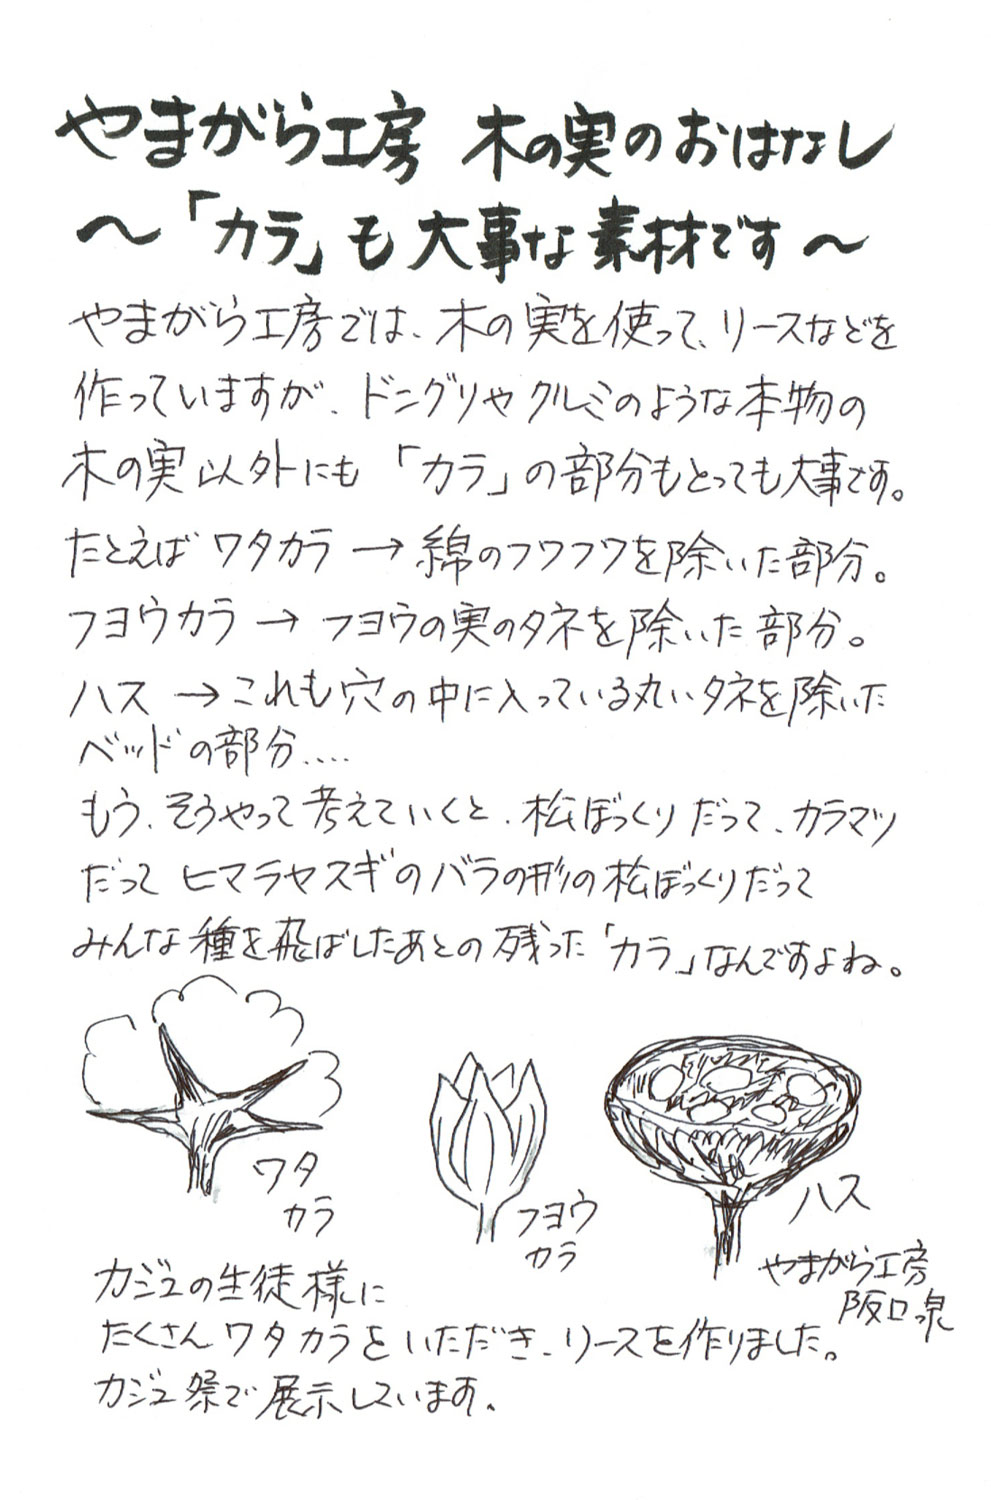 やまがら工房 木の実のおはなし
〜「カラ」も大事な素材です〜
やまがら工房では、木の実を使って、リースなどを
作っていますが、ドングリやクルミのような本物の
木の実以外にも「カラ」の部分もとっても大事です。
たとえばワタカラ→綿のフワフワを除いた部分。
フヨウカラ→フヨウの実のタネを除いた部分。
ハス→これも穴の中に入っている丸いタネを除いた
ベッドの部分....
もう、そうやって考えていくと、松ぼっくりだって、カラマツ
だってヒマラヤスギのバラの形の松ぼっくりだって
みんな種を飛ばしたあとの残った「カラ」なんですよね。
ワタ
カラ
フヨウ
カラ
ハス
やまがら工房
阪口泉
カジュの生徒様に
たくさんワタカラをいただき、リースを作りました。
カジュ祭で展示しています。